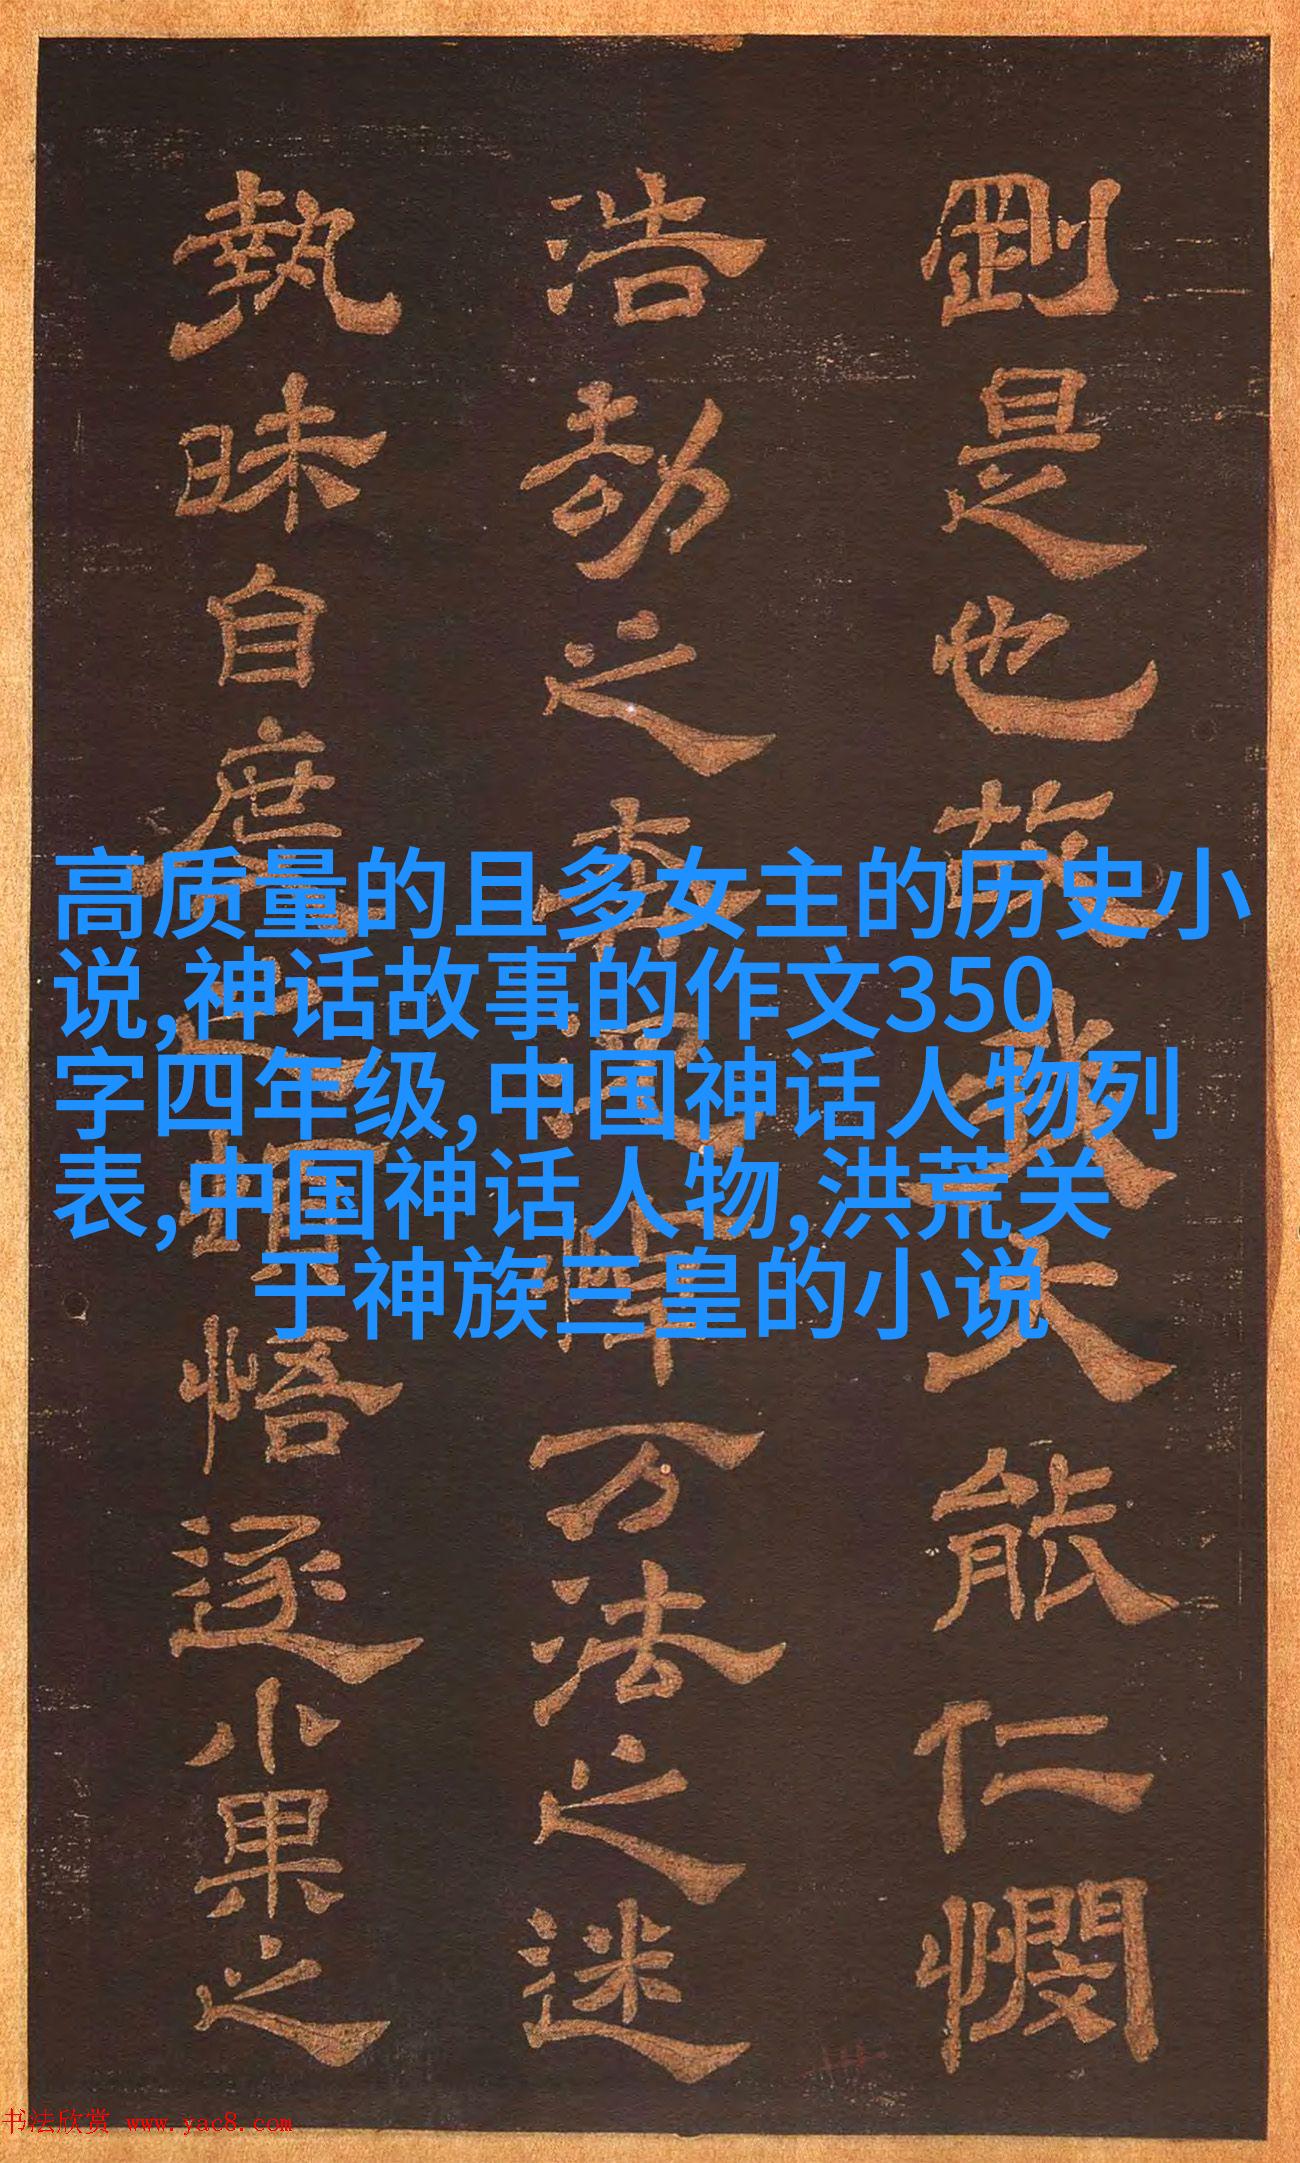 高质量的且多女主的历史小
说,神话故事的作文350
字四年级,中国神话人物列
表,中国神话人物,洪荒关
于神族三皇的小说
剛是也故我大能仁憫
浩劫之悼万法之迷
執昧自悟逐小果之
书法欣赏 www.yac8.com